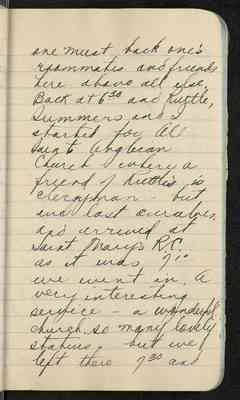 one must back one's
roommates and friends
here above all else.
Back at 6³⁰ and Kuttle,
Summers and I
started for All
Saint's Anglican
Church where a
friend of Kuttle's is
clergyman - but
we lost ourselves
and arrived at
Saint Mary's R.C.
as it was 7¹⁰
we went in. A
very interesting
service - a wonderful
church, so many lovely
statues, but we
left there 7³⁰ and